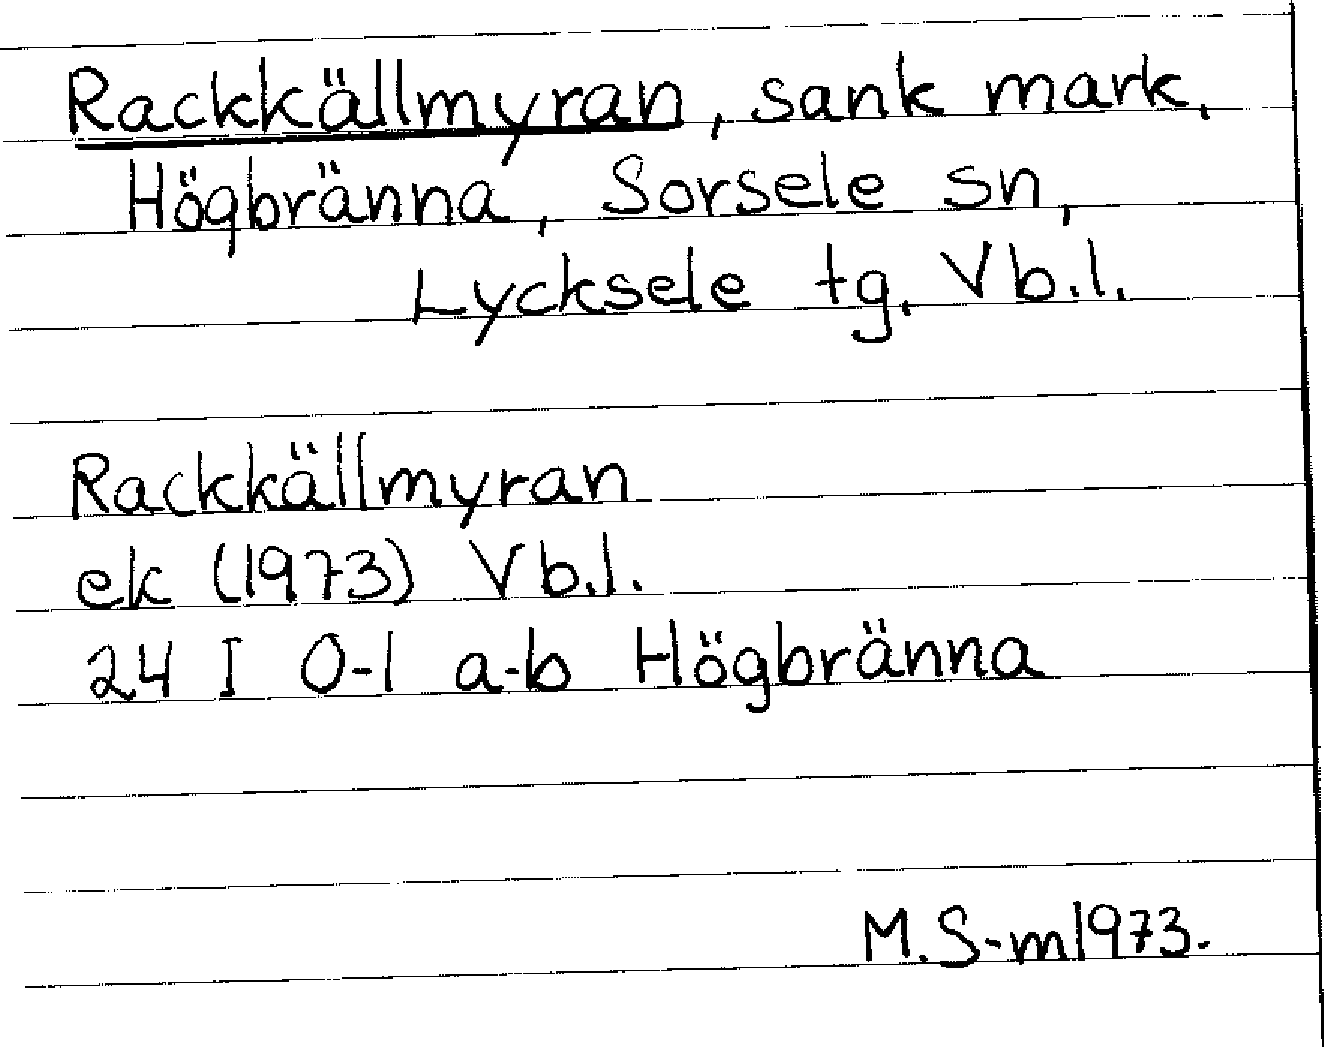 Rackkällmyran, sank mark,
Högbränna, Sorsele sn,
Lycksele tg, Vb.l.
Rackkällmyran
ek (1973) Vb.l.
24 I 0-1 a-b Högbränna
M.S-m 1973.